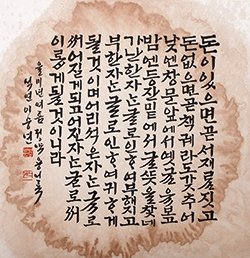 돈이있으면곧서재를짓고
돈없으면곧책궤라도갖추어
낮엔창문앞에서옛글을보고
밤엔등잔밑에서글뜻을찾네
가난한자는글로인하여부해지고
부한자는글로인하여귀하게
될것이며어리석은자는글로
써어질게되고어진자는글로써
이롭게될것이니라
을미년여름